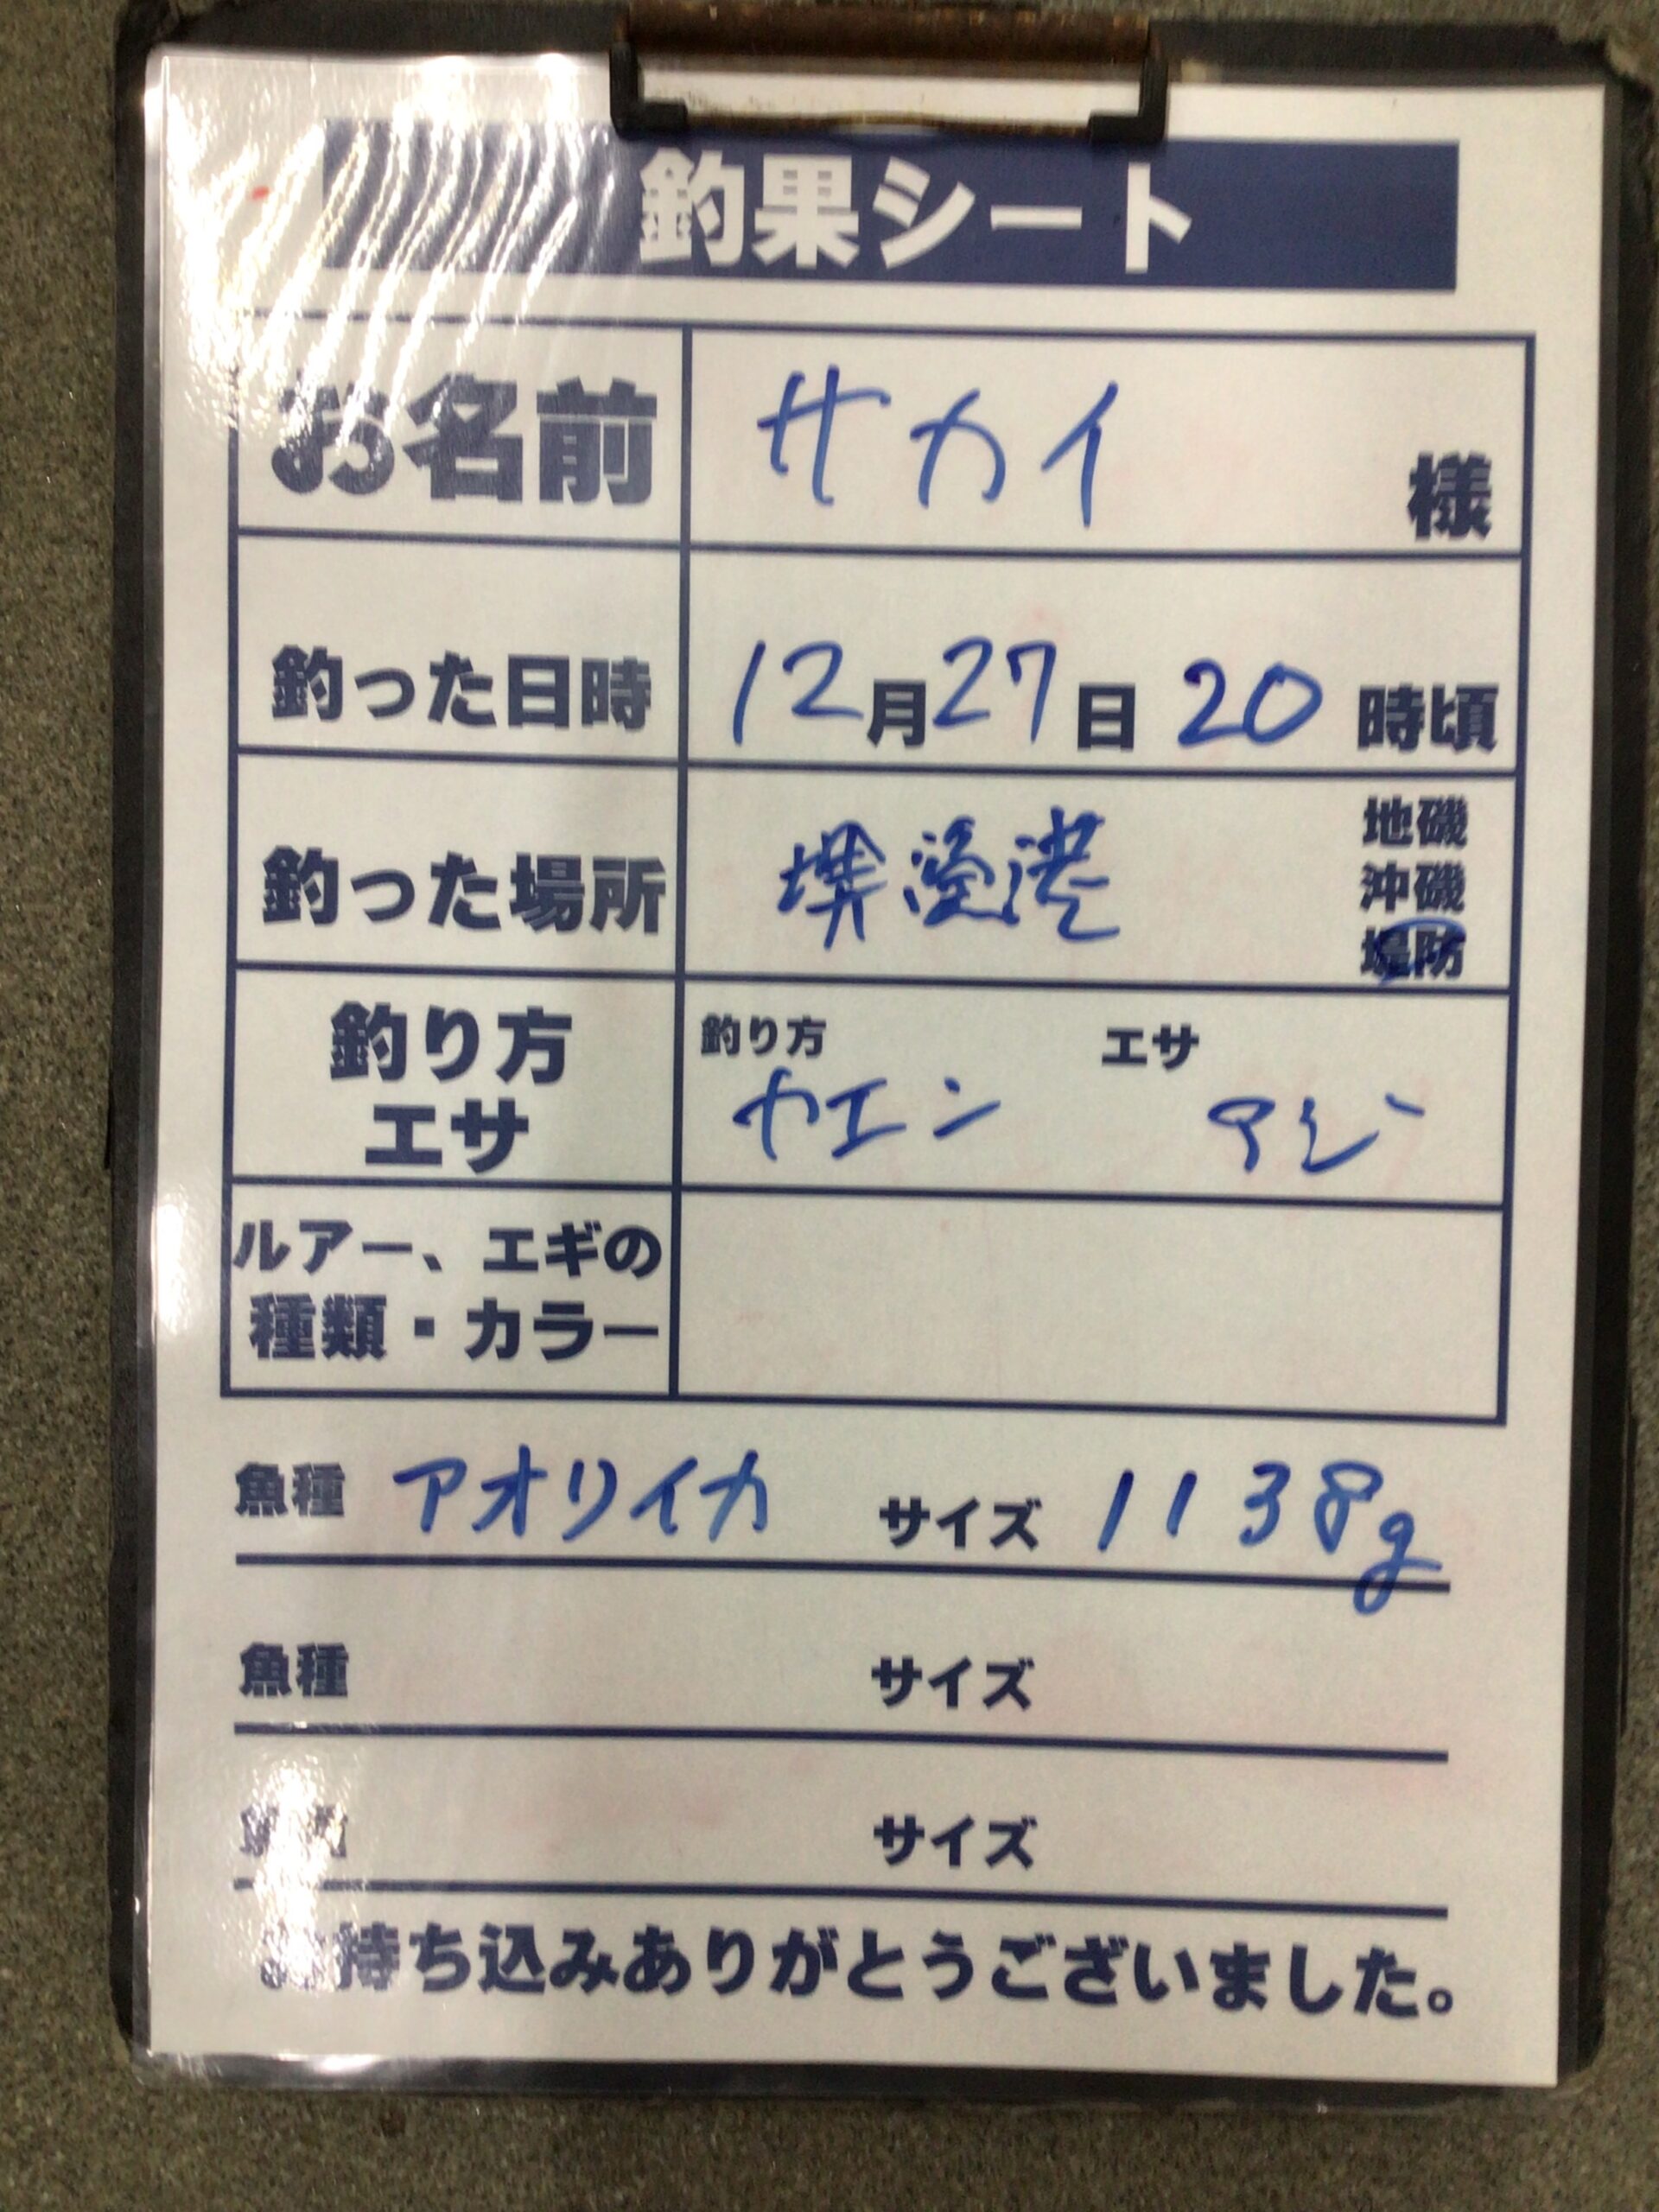 釣果シート
お名前 サカイ 様
釣った日時 12月27日 20時頃
釣った場所 堺漁港 地磯 沖磯 堤防
釣り方 エサ 釣り方 カエン エサ アジ
ルアー、エギの
種類・カラー
魚種 アオリイカ サイズ 1138g
魚種 サイズ
魚種 サイズ
お持ち込みありがとうございました。